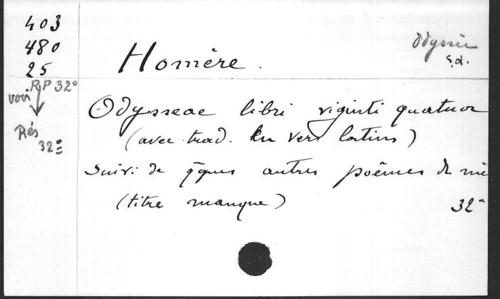 403
480
25
RP 32°
voir
Rés
32=
Odyssée
s.d.
Homère.
Odysseae libri viginti quatuor
(avec trad. en vers latins)
suivi de qques autres poèmes de
(titre manque)
32°